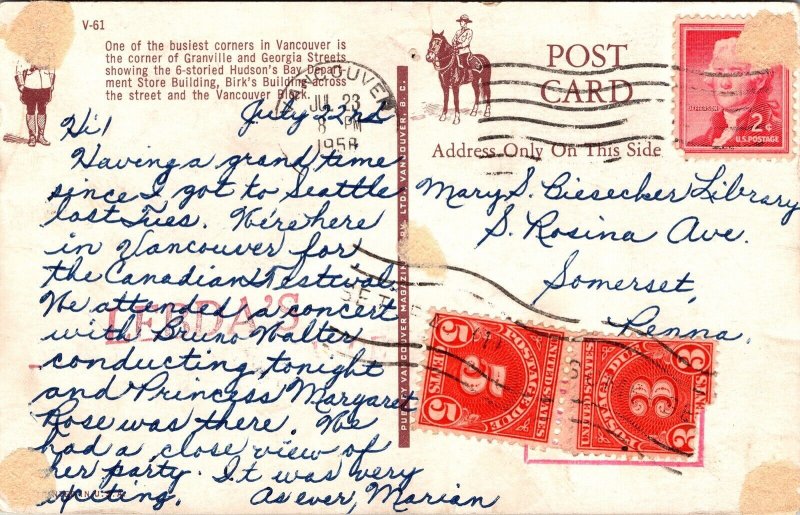 V-61
One of the busiest corners in Vancouver is
the corner of Granville and Georgia Streets
showing the 6-storied Hudson's Bay Depart-
ment Store Building, Birk's Building across
the street and the Vancouver Block.
VANCOUVER
JUL 23
8 PM
1958
POST
CARD
Address Only On This Side
JEFFERSON
2¢
U.S. POSTAGE
July 22nd
Hi!
Having a grand time
since I got to Seattle
last Tues. We're here
in Vancouver for
the Canadian Festival.
We attended a concert
with Bruno Walter
conducting tonight
and Princess Margaret
Rose was there. We
had a close view of
her party. It was very
exciting. As ever, Marian
LEBDA'S
VANCOUVER MAGAZINE SERV. LTD. VANCOUVER, B.C.
Mary S. Biesecker Library
S. Rosina Ave.
Somerset,
Penna.
POSTAGE DUE
UNITED STATES
5 5
CENTS
5
POSTAGE DUE
UNITED STATES
3
3
3